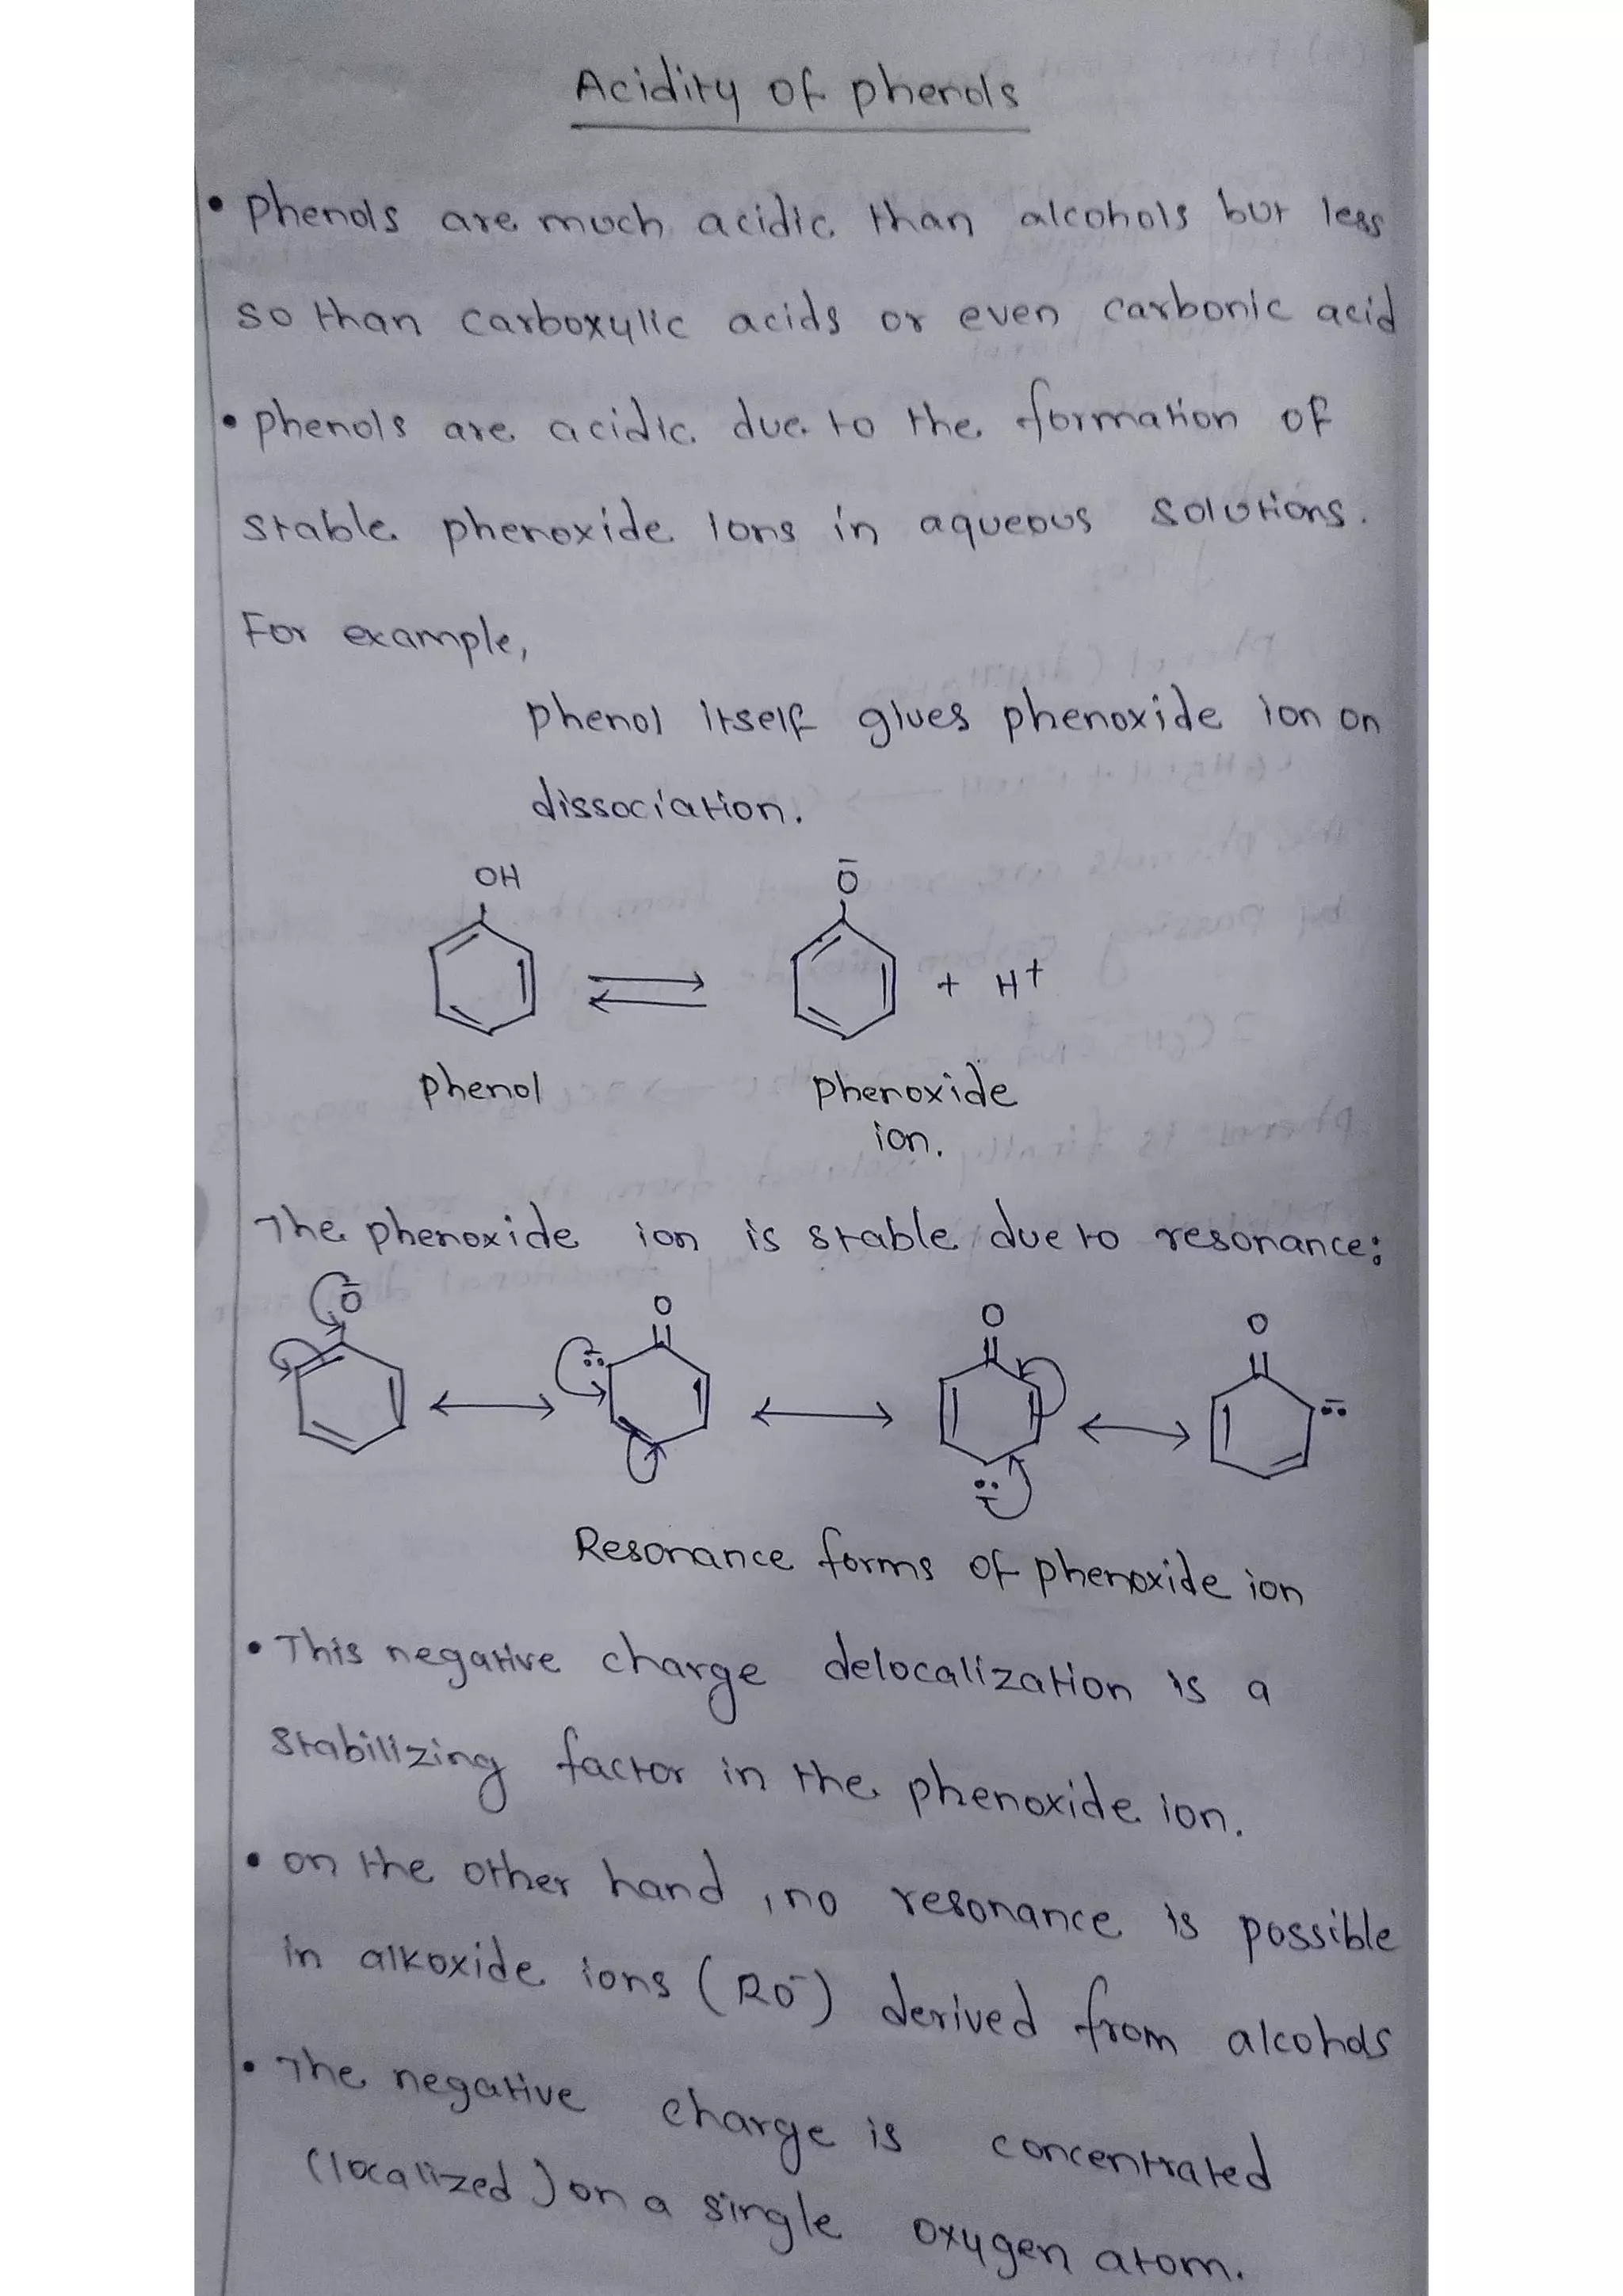 Acidity of phenols
• phenols are much acidic than alcohols but less
so than carboxylic acids or even carbonic acid
• phenols are acidic due to the formation of
stable phenoxide ions in aqueous solutions.
For example,
phenol itself gives phenoxide ion on
dissociation.
OH
Ō
+ H+
phenol
phenoxide
ion.
The phenoxide ion is stable due to resonance:
Ō
O
O
O
Resonance forms of phenoxide ion
• This negative charge delocalization is a
stabilizing factor in the phenoxide ion.
• on the other hand, no resonance is possible
in alkoxide ions (RO-) derived from alcohols
• The negative charge is concentrated
(localized) on a single oxygen atom.